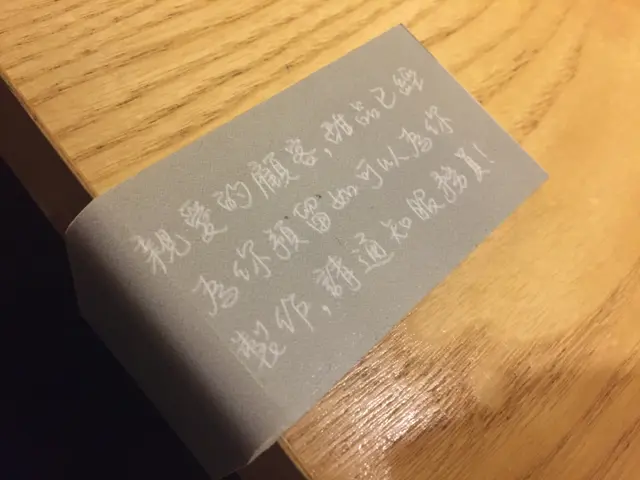 親愛的顧客,甜品已經
為你預留如可以為你
製作,請通知服務員!